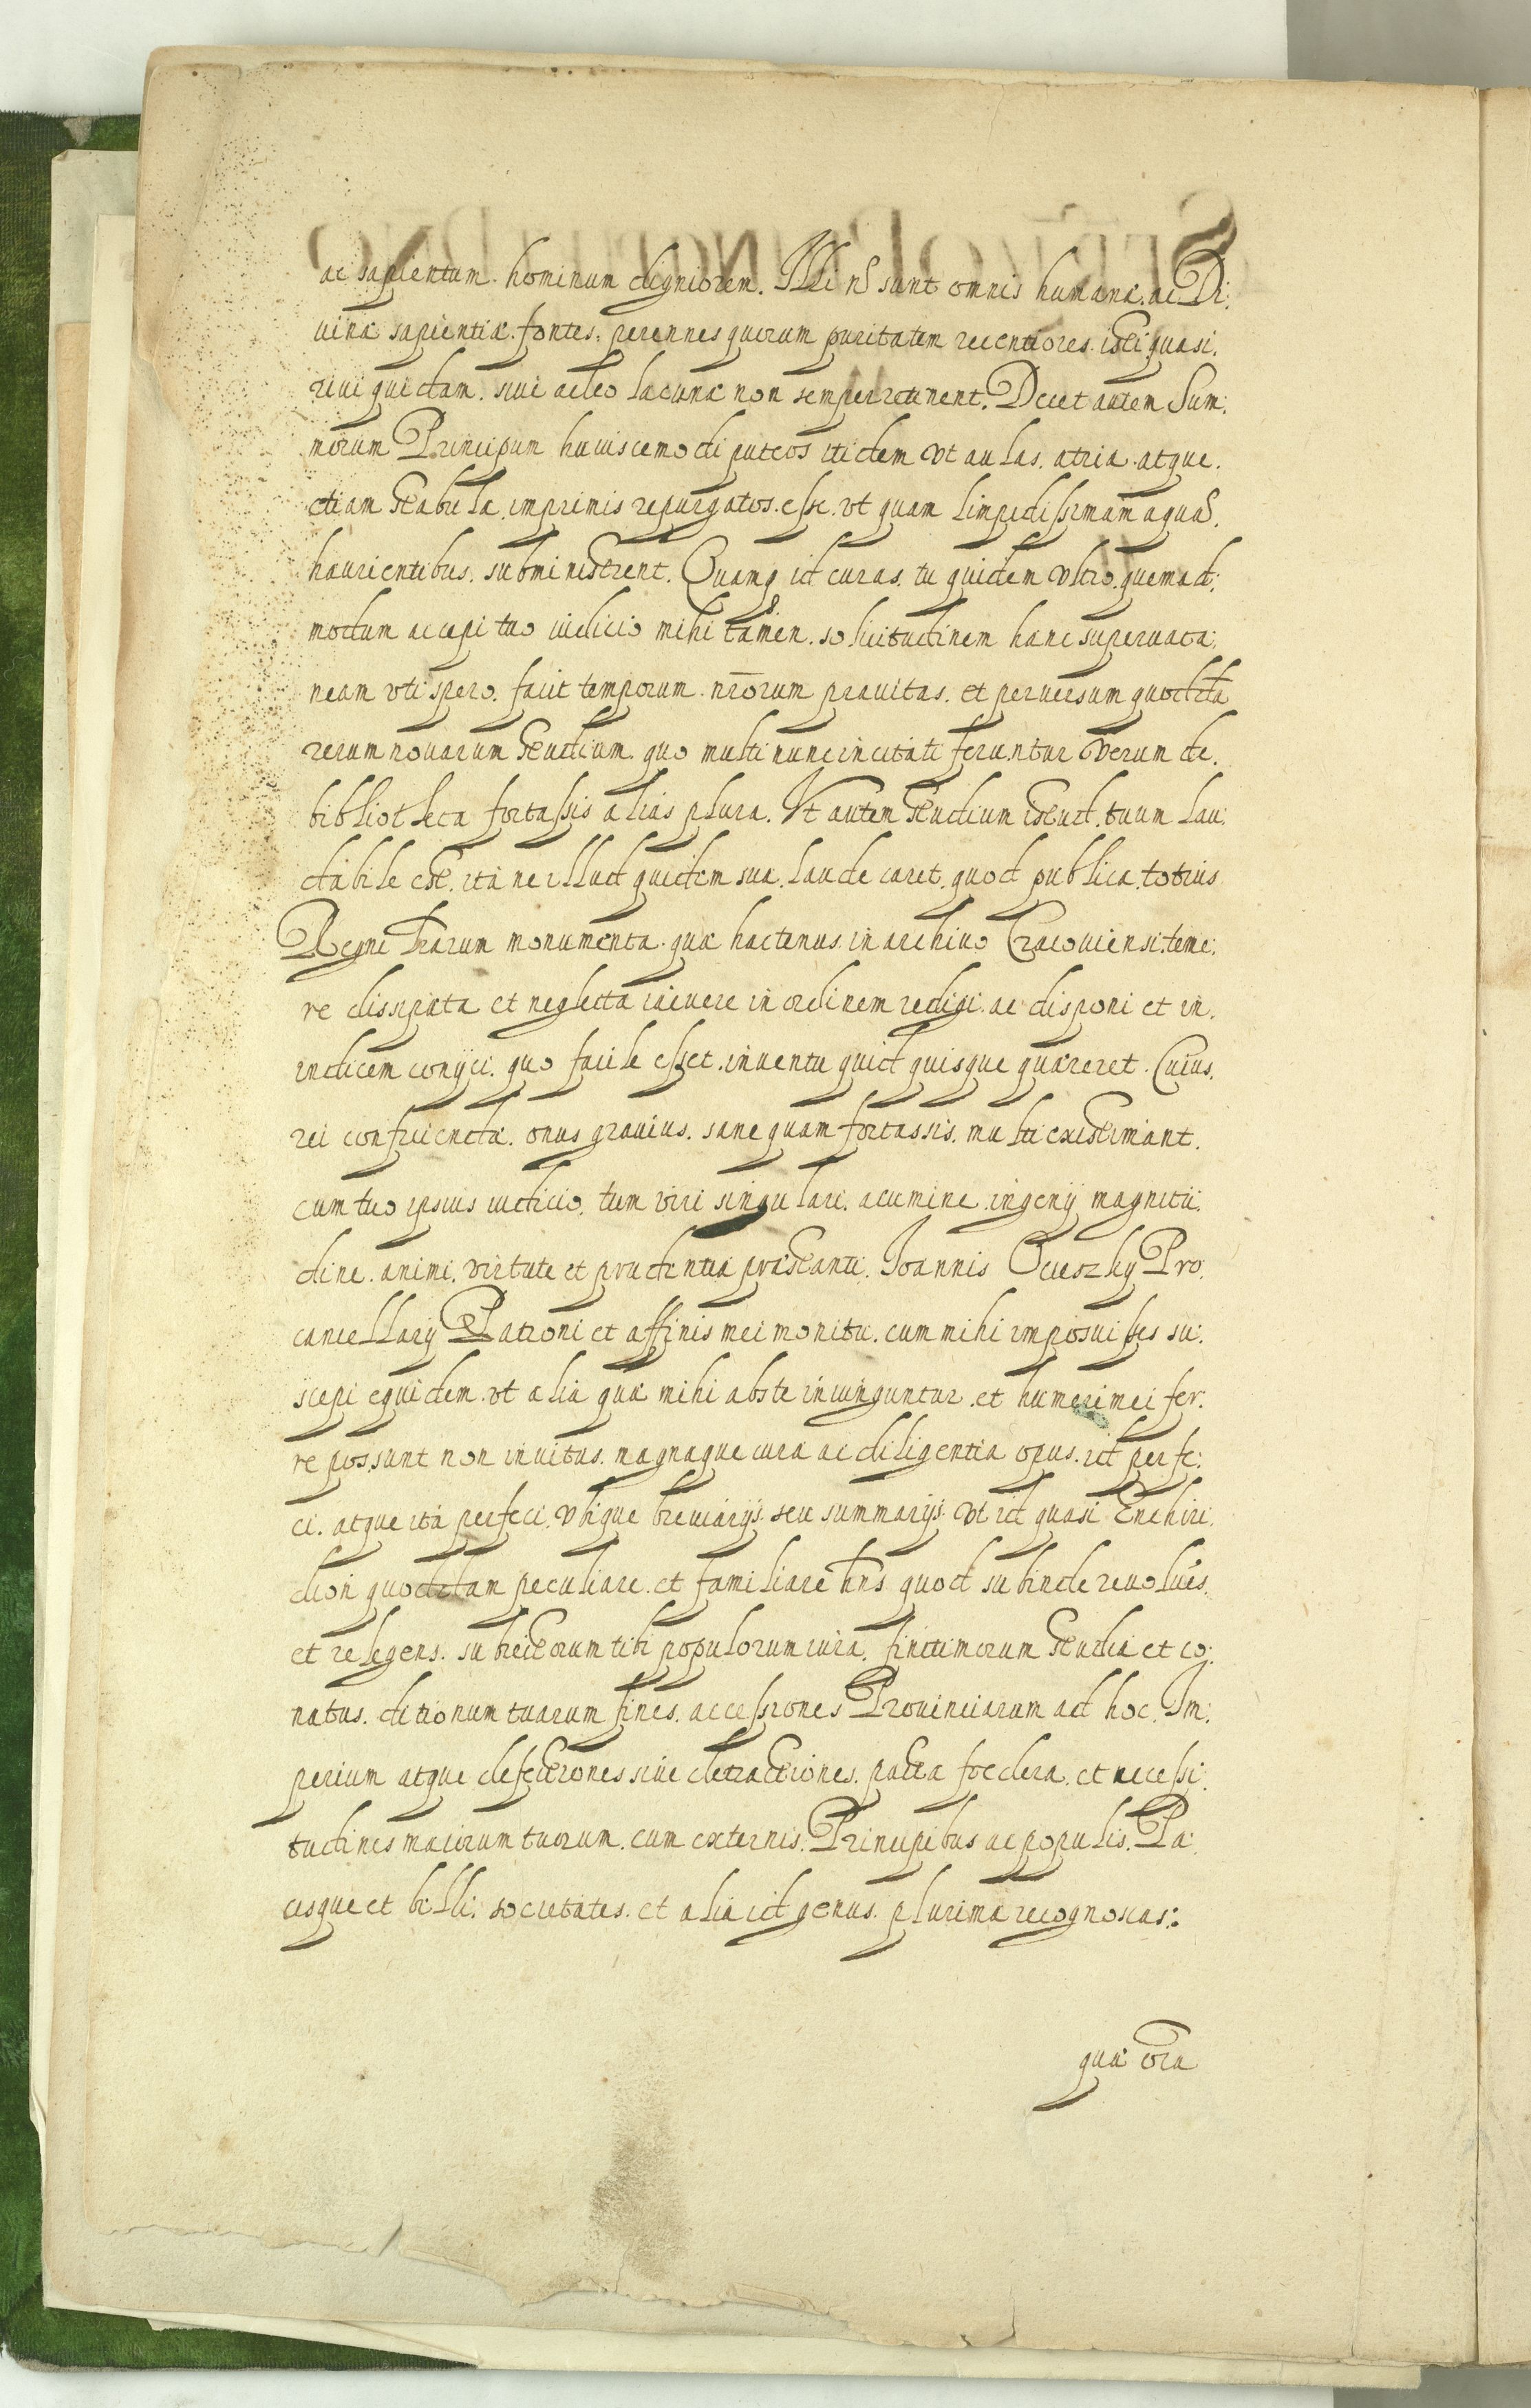 ac sapientum hominum digniorem. Illi n̄ sunt omnis humanæ ac Di:
uinæ sapientiæ fontes, perennes quorum puritatem recentiores isti quasi.
riui quidam. siue adeo lacunæ non semper retinent. Decet autem Sum:
morum Principum huiuscemodi puteos itidem vt aulas. atria. atque.
etiam stabula. imprimis repurgatos. esse. vt quam limpidissimam aquā.
haurientibus. subministrent. Quamq̨ id curas. tu quidem vltro. quemad:
modum accepi tuo iudicio mihi tamen. solicitudinem hanc superuaca:
neam vti spero. facit temporum. nr̄orum prauitas. et peruersum quoddā
rerum nouarum studium. quo multi nunc incitati feruntur Verum de.
bibliotheca fortassis alias plura. Vt autem studium istud. tuum lau:
dabile est. ita ne illud quidem sua. laude caret. quod publica. totius
Regni lr̄arum monumenta. quæ hactenus. in archiuo Cracouiensi. teme:
re dissipata et neglecta iacuere in ordinem redigi. ac disponi et in.
indicem conijci. quo facile esset. inuentu quid quisque quæreret. Cuius.
rei conficiendæ. onus grauius. sane quam fortassis. multi existimant.
cum tuo ipsius iudicio. tum viri singulari. acumine. ingenij magnitu:
dine. animi. virtute et prudentia præstanti. Joannis Ocieszky Pro:
cancellarij Patroni et affinis mei monitu. cum mihi imposuisses su:
scepi equidem. vt alia quæ mihi abste iniunguntur. et humeri mei fer:
re possunt non inuitus. magnaque cura ac diligentia opus. id perfe:
ci. atque ita perfeci. vtique breuiarijs. seu summarijs. vt id quasi Enchiri:
dion quoddam peculiare. et familiare hn̄s quod subinde reuolues.
et relegens. subiectorum tibi populorum iura. finitimorum studia et co:
natus. ditionum tuarum fines. accessiones Prouinciarum ad hoc. Im:
perium atque defectiones siue detractiones. pacta foedera. et necessi:
tudines maiorum tuorum. cum externis. Principibus ac populis. Pa:
cisque et belli. societates. et alia id genus. plurima recognoscas:
quæ vr̄a